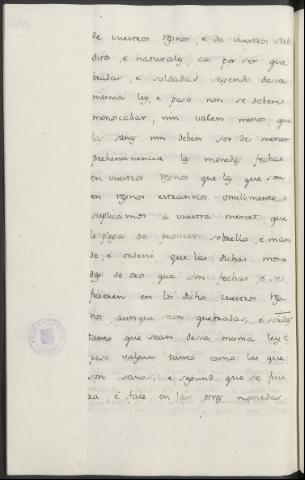 de vuestros regnos, e de vuestros sub
ditos, e naturales, ca por ser que
bradas, e soldadas seyendo dessa
mesma ley, e peso non se deben
menoscabar, nin valen menos que
la sana nin deben ser de menor
preheminencia las monedas fechas
en vuestros regnos que las que son
en regnos estrannos. Omillmente
suplicamos a vuestra merced, que
le plega de proveer sobrello, e man
de, e ordene que las dichas mone
das de oro que son fechas, e se
ficieren en los dichos vuestros reg
nos, aunque sean quebradas, e soldadas
tanto que sean dessa mesma ley, e
peso valgan tanto como las que
son sanas, e segund que se
e face en las otras monedas